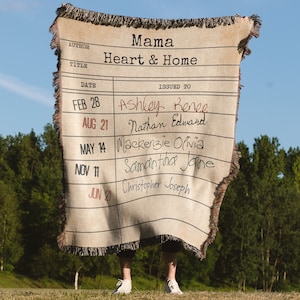 AUTHOR Mama
TITLE Heart & Home
DATE ISSUED TO
FEB 28 Ashley Renee
AUG 21 Nathan Edward
MAY 14 Mackenzie Olivia
NOV 11 Samantha Jane
JUN Christopher Joseph